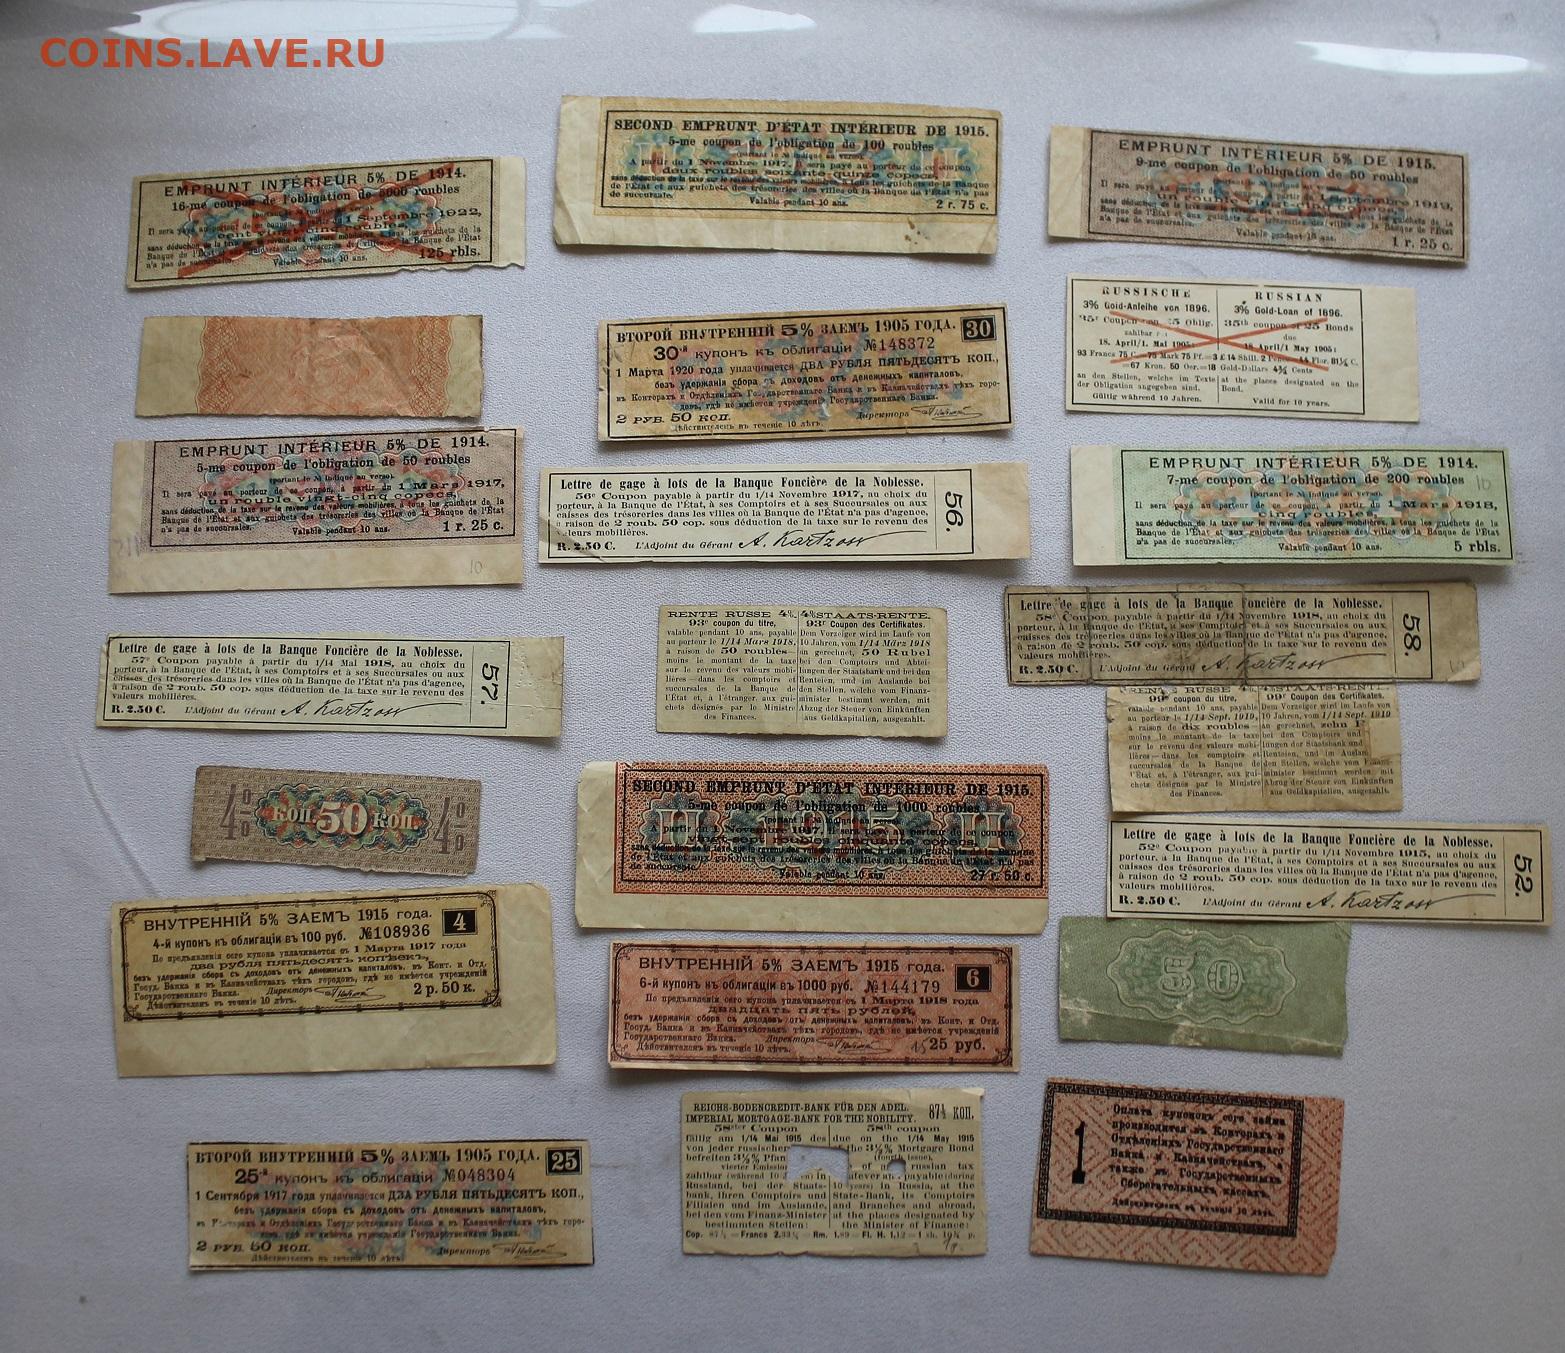 COINS.LAVE.RU
EMPRUNT INTÉRIEUR 5% DE 1914.
16-me coupon de l'obligation de 5000 roubles
1 Septembre 1922,
sans déduction de la taxe sur le revenu des valeurs mobilières
Banque de l'État
n'a pas de succursales.
Valable pendant 10 ans.
125 rbls.
SECOND EMPRUNT D'ÉTAT INTÉRIEUR DE 1915.
5-me coupon de l'obligation de 100 roubles
(portant le № indiqué au verso).
A partir du 1 Novembre 1917, il sera payé au porteur de ce coupon
deux roubles soixante-quinze copecs,
sans déduction de la taxe sur le revenu des valeurs mobilières, à tous les guichets de la Banque
de l'État et aux guichets des trésoreries des villes où la Banque de l'État n'a pas
de succursale.
Valable pendant 10 ans.
2 r. 75 c.
EMPRUNT INTÉRIEUR 5% DE 1915.
9-me coupon de l'obligation de 50 roubles
Il sera payé au porteur de ce coupon, à partir du 1 Septembre 1919,
n'a pas de succursales.
Valable pendant 10 ans.
1 r. 25 c.
ВТОРОЙ ВНУТРЕННІЙ 5% ЗАЕМЪ 1905 ГОДА.
30
30-й купонъ къ облигаціи №148372
1 Марта 1920 года уплачивается ДВА РУБЛЯ ПЯТЬДЕСЯТЪ КОП.,
безъ удержанія сбора съ доходовъ отъ денежныхъ капиталовъ,
въ Конторахъ и Отдѣленіяхъ Государственнаго Банка и въ Казначействахъ тѣхъ горо-
довъ, гдѣ не имѣется учрежденій Государственнаго Банка.
2 РУБ. 50 КОП.
Директоръ
Дѣйствителенъ въ теченіе 10 лѣтъ.
RUSSISCHE
3% Gold-Anleihe von 1896.
35e Coupon 25 Oblig.
zahlbar
18. April/1. Mai 1905:
RUSSIAN
3% Gold-Loan of 1896.
35th coupon of 25 Bonds
due
18 April/1 May 1905:
93 Francs 75 C. 75 Mark 75 Pf. 3 £ 14 Shill. 2 Pence 44 Flor. 81¼ C.
67 Kron. 50 Oer. 18 Gold-Dollars 4¾ Cents
an den Stellen, welche im Texte
der Obligation angegeben sind.
Gültig während 10 Jahren.
at the places designated on the
Bond.
Valid for 10 years.
EMPRUNT INTÉRIEUR 5% DE 1914.
5-me coupon de l'obligation de 50 roubles
(portant le № indiqué au verso).
Il sera payé au porteur de ce coupon, à partir du 1 Mars 1917,
un rouble vingt-cinq copecs,
sans déduction de la taxe sur le revenu des valeurs mobilières, à tous les guichets de la
Banque de l'État et aux guichets des trésoreries des villes où la Banque de l'État
n'a pas de succursales.
Valable pendant 10 ans.
1 r. 25 c.
10
Lettre de gage à lots de la Banque Foncière de la Noblesse.
56e Coupon payable à partir du 1/14 Novembre 1917, au choix du
porteur, à la Banque de l'État, à ses Comptoirs et à ses Succursales ou aux
caisses des trésoreries dans les villes où la Banque de l'État n'a pas d'agence,
à raison de 2 roub. 50 cop. sous déduction de la taxe sur le revenu des
valeurs mobilières.
R. 2.50 C.
L'Adjoint du Gérant A. Kartzow
56.
EMPRUNT INTÉRIEUR 5% DE 1914.
7-me coupon de l'obligation de 200 roubles
10
(portant le № indiqué au verso).
Il sera payé au porteur de ce coupon, à partir du 1 Mars 1918,
cinq roubles,
sans déduction de la taxe sur le revenu des valeurs mobilières, à tous les guichets de la
Banque de l'État et aux guichets des trésoreries des villes où la Banque de l'État
n'a pas de succursales.
Valable pendant 10 ans.
5 rbls.
Lettre de gage à lots de la Banque Foncière de la Noblesse.
57e Coupon payable à partir du 1/14 Mai 1918, au choix du
porteur, à la Banque de l'État, à ses Comptoirs et à ses Succursales ou aux
caisses des trésoreries dans les villes où la Banque de l'État n'a pas d'agence,
à raison de 2 roub. 50 cop. sous déduction de la taxe sur le revenu des
valeurs mobilières.
R. 2.50 C.
L'Adjoint du Gérant A. Kartzow
57.
RENTE RUSSE 4%.
93e coupon du titre,
valable pendant 10 ans, payable
au porteur le 1/14 Mars 1918
à raison de 50 roubles—
moins le montant de la taxe
sur le revenu des valeurs mobi-
lières—dans les comptoirs et
succursales de la Banque de
l'État et, à l'étranger, aux gui-
chets désignés par le Ministre
des Finances.
4% STAATS-RENTE.
93r Coupon des Certificates.
Dem Vorzeiger wird im Laufe von
10 Jahren, vom 1/14 März 1918
an gerechnet, 50 Rubel
bei den Comptoirs und Abtei-
lungen der Staatsbank und bei den
Renteien, und im Auslande bei
den Stellen, welche vom Finanz-
minister bestimmt werden, mit
Abzug der Steuer von Einkünften
aus Geldkapitalien, ausgezahlt.
Lettre de gage à lots de la Banque Foncière de la Noblesse.
58e Coupon payable à partir du 1/14 Novembre 1918, au choix du
porteur, à la Banque de l'État, à ses Comptoirs et à ses Succursales ou aux
caisses des trésoreries dans les villes où la Banque de l'État n'a pas d'agence,
à raison de 2 roub. 50 cop. sous déduction de la taxe sur le revenu des
valeurs mobilières.
R. 2.50 C.
L'Adjoint du Gérant A. Kartzow
58.
RENTE RUSSE 4%.
99e coupon du titre,
valable pendant 10 ans, payable
au porteur le 1/14 Sept. 1919
à raison de dix roubles—
moins le montant de la taxe
sur le revenu des valeurs mobi-
lières—dans les comptoirs et
succursales de la Banque de
l'État et, à l'étranger, aux gui-
chets désignés par le Ministre
des Finances.
4% STAATS-RENTE.
99r Coupon des Certificates.
Dem Vorzeiger wird im Laufe von
10 Jahren, vom 1/14 Sept. 1919
an gerechnet, zehn
bei den Comptoirs und
lungen der Staatsbank und
Renteien, und im Auslan
den Stellen, welche vom
minister bestimmt werden mit
Abzug der Steuer von Einkünften
aus Geldkapitalien, ausgezahlt.
4% КОП. 50 КОП. 4%
SECOND EMPRUNT D'ÉTAT INTÉRIEUR DE 1915.
5-me coupon de l'obligation de 1000 roubles
(portant le № indiqué au verso).
A partir du 1 Novembre 1917, il sera payé au porteur de ce coupon
vingt-sept roubles cinquante copecs,
sans déduction de la taxe sur le revenu des valeurs mobilières, à tous les guichets de la Banque
de l'État et aux guichets des trésoreries des villes où la Banque de l'État n'a pas
de succursale.
Valable pendant 10 ans.
27 r. 50 c.
Lettre de gage à lots de la Banque Foncière de la Noblesse.
52e Coupon payable à partir du 1/14 Novembre 1915, au choix du
porteur, à la Banque de l'État, à ses Comptoirs et à ses Succursales ou aux
caisses des trésoreries dans les villes où la Banque de l'État n'a pas d'agence,
à raison de 2 roub. 50 cop. sous déduction de la taxe sur le revenu des
valeurs mobilières.
R. 2.50 C.
L'Adjoint du Gérant A. Kartzow
52.
ВНУТРЕННІЙ 5% ЗАЕМЪ 1915 года.
4
4-й купонъ къ облигаціи въ 100 руб. №108936
По предъявленіи сего купона уплачивается съ 1 Марта 1917 года
два рубля пятьдесятъ копѣекъ,
безъ удержанія сбора съ доходовъ отъ денежныхъ капиталовъ, въ Конт. и Отд.
Госуд. Банка и въ Казначействахъ тѣхъ городовъ, гдѣ не имѣется учрежденій
Государственнаго Банка.
Директоръ
2 р. 50 к.
Дѣйствителенъ въ теченіе 10 лѣтъ.
ВНУТРЕННІЙ 5% ЗАЕМЪ 1915 года.
6
6-й купонъ къ облигаціи въ 1000 руб. №144179
По предъявленіи сего купона уплачивается съ 1 Марта 1918 года
двадцать пять рублей,
безъ удержанія сбора съ доходовъ отъ денежныхъ капиталовъ, въ Конт. и Отд.
Госуд. Банка и въ Казначействахъ тѣхъ городовъ, гдѣ не имѣется учрежденій
Государственнаго Банка.
Директоръ
25 руб.
Дѣйствителенъ въ теченіе 10 лѣтъ.
50
ВТОРОЙ ВНУТРЕННІЙ 5% ЗАЕМЪ 1905 ГОДА.
25
25-й купонъ къ облигаціи №048304
1 Сентября 1917 года уплачивается ДВА РУБЛЯ ПЯТЬДЕСЯТЪ КОП.,
безъ удержанія сбора съ доходовъ отъ денежныхъ капиталовъ,
въ Конторахъ и Отдѣленіяхъ Государственнаго Банка и въ Казначействахъ тѣхъ горо-
довъ, гдѣ не имѣется учрежденій Государственнаго Банка.
2 РУБ. 50 КОП.
Директоръ
Дѣйствителенъ въ теченіе 10 лѣтъ.
REICHS-BODENCREDIT-BANK FÜR DEN ADEL.
IMPERIAL MORTGAGE-BANK FOR THE NOBILITY.
87½ КОП.
58ster Coupon
fällig am 1/14 Mai 1915 des
von jeder russischen
befreiten 3½% Pfan
vierter Emission
zahlbar (während 10 in
Russland, bei der Staats-
bank, ihren Comptoirs und
Filialen und im Auslande,
bei den vom Finanz-Minister
bestimmten Stellen:
58th coupon
due on the 1/14 May 1915
the 3½% Mortgage Bond
(fourth issue),
of russian tax
whatever payable (during
10 years) in Russia, at the
State-Bank, its Comptoirs
and Branches and abroad,
at the places designated by
the Minister of Finance:
Cop. 87½ — Francs 2.33¼ — Rm. 1.89 — Fl. H. 1.12 — 1 sh. 10¼ p.
1
Оплата купоновъ сего займа
производится въ Конторахъ и
Отдѣленіяхъ Государственнаго
Банка и Казначействахъ, а
также въ Государственныхъ
Сберегательныхъ кассахъ.
Дѣйствителенъ въ теченіе 10 лѣтъ.